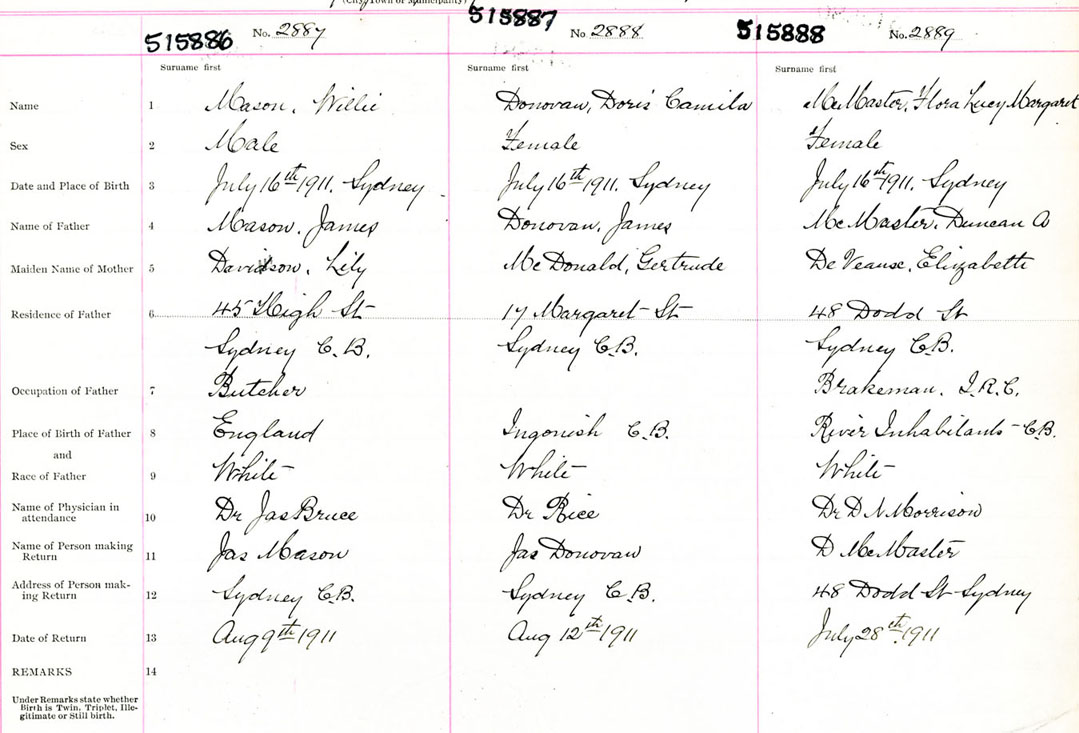 (City, Town or Municipality)
515886 No. 2887 515887 No. 2888 515888 No. 2889
Surname first Surname first Surname first
Name 1 Mason, Willie Donovan, Doris Camila McMaster, Flora Lucy Margaret
Sex 2 Male Female Female
Date and Place of Birth 3 July 16th 1911. Sydney July 16th 1911. Sydney July 16th 1911. Sydney
Name of Father 4 Mason, James Donovan, James McMaster, Duncan A
Maiden Name of Mother 5 Davidson, Lily McDonald, Gertrude De Veause, Elizabeth
Residence of Father 6 45 High St 17 Margaret St 48 Dodd St
Sydney C.B. Sydney C.B. Sydney C.B.
Occupation of Father 7 Butcher Brakeman. I.R.C.
Place of Birth of Father 8 England Ingonish C.B. River Inhabitants - C.B.
and
Race of Father 9 White White White
Name of Physician in
attendance 10 Dr Jas Bruce Dr Rice Dr D N Morrison
Name of Person making
Return 11 Jas Mason Jas Donovan D McMaster
Address of Person mak-
ing Return 12 Sydney C.B. Sydney C.B. 48 Dodd St Sydney
Date of Return 13 Aug 9th 1911 Aug 12th 1911 July 28th 1911
REMARKS 14
Under Remarks state whether
Birth is Twin, Triplet, Ille-
gitimate or Still birth.